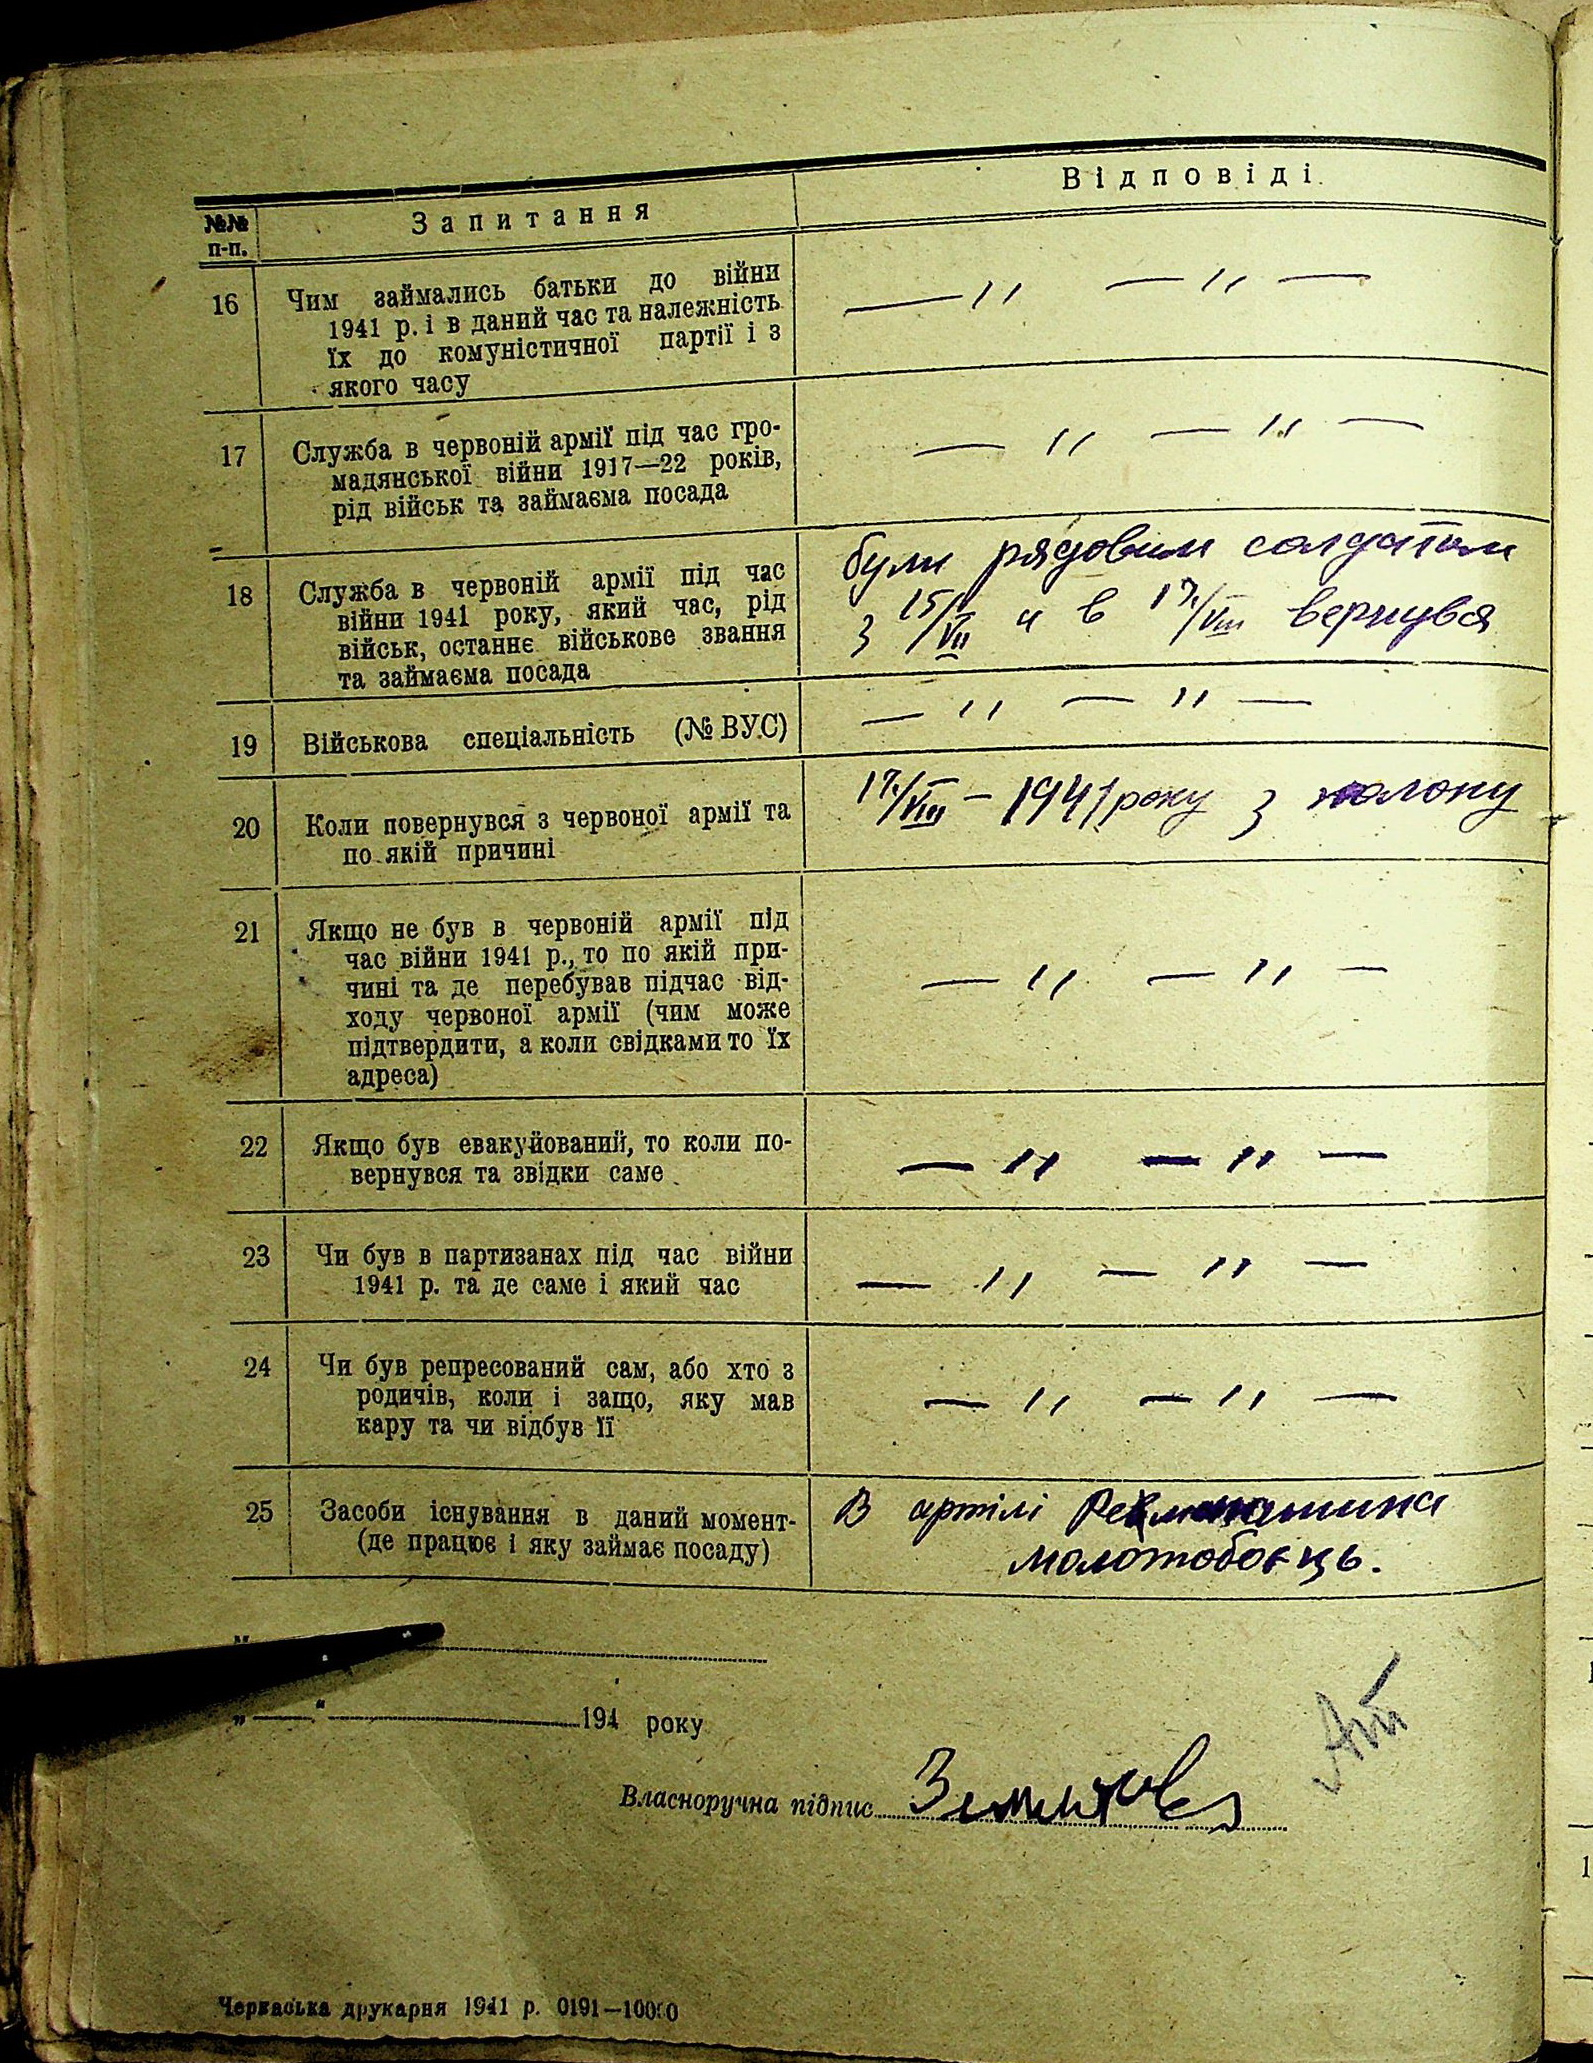 №№ п-п. Запитання Відповіді
16 Чим займались батьки до війни — " — " —
1941 р. і в даний час та належність
їх до комуністичної партії і з
якого часу
17 Служба в червоній армії під час гро- — " — " —
мадянської війни 1917—22 років,
рід військ та займаєма посада
18 Служба в червоній армії під час були рядовим солдатом
війни 1941 року, який час, рід з 15/VII и в 17/VIII вернувся
військ, останнє військове звання
та займаєма посада
19 Військова спеціальність (№ ВУС) — " — " —
20 Коли повернувся з червоної армії та 17/VIII — 1941 року з полону
по якій причині
21 Якщо не був в червоній армії під — " — " —
час війни 1941 р., то по якій при-
чині та де перебував підчас від-
ходу червоної армії (чим може
підтвердити, а коли свідками то їх
адреса)
22 Якщо був евакуйований, то коли по- — " — " —
вернувся та звідки саме
23 Чи був в партизанах під час війни — " — " —
1941 р. та де саме і який час
24 Чи був репресований сам, або хто з — " — " —
родичів, коли і защо, яку мав
кару та чи відбув її
25 Засоби існування в даний момент- В артілі
(де працює і яку займає посаду) молотобоєць.
„ “ 194 року
Власноручна підпис
Черкаська друкарня 1941 р. 0191—10000